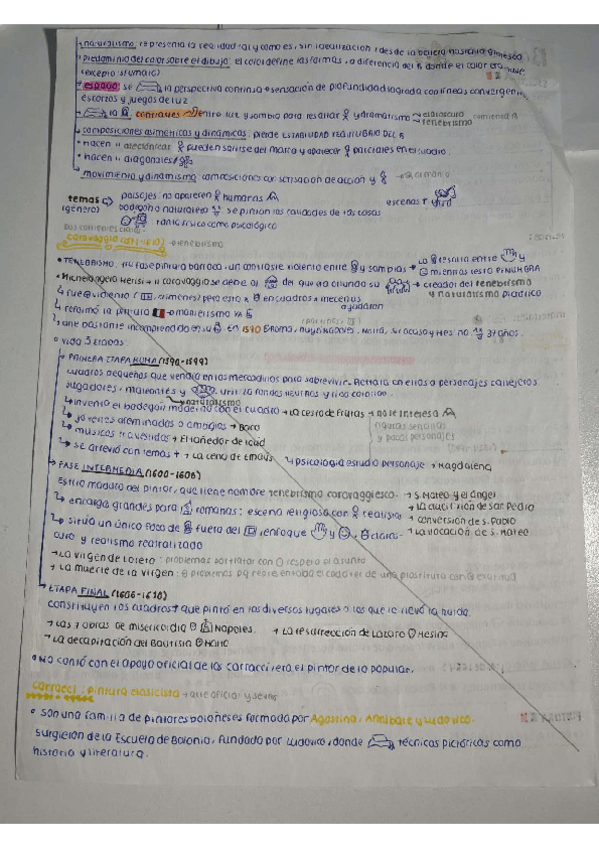 · naturalismo: representa la realidad tal y como es, sin idealización, desde la belleza hasta la
· predominio del color sobre el dibujo: el color define las formas, a diferencia del R donde el color era
(excepto sfumato)
· espacio: se la perspectiva continua + sensación de profundidad lograda con líneas convergen
escorzos y juegos de luz
la contrastes entre luz y sombra para resaltar y dramatismo → claroscuro
tenebrismo
· composiciones asimétricas y dinámicas: pierde ESTABILIDAD Y EQUILIBRIO DEL R
· hacen atectónicas pueden salirse del marco y aparecer parciales en cuadro.
· hacen diagonales
· movimiento y dinamismo: composiciones con sensación de acción y
temas → paisajes no aparecen humanas
(género) bodegón o naturaleza se pintan las cualidades de las cosas
escenas
tanto físico como psicológico
Dos corrientes claras:
Caravaggio (1571-1610) → tenebrismo
· TENEBRISMO: 1ª fase pintura barroca, un contraste violento entre y sombras → la resalta entre y
mientras resto PENUMBRA
· Michelangelo Merisi, caravaggio se debe al del que era oriundo su → creador del tenebrismo
y naturalismo pictórico
↳ fue violento ( , crímenes) pero esto no encuadros x mecenas
ayudaron
↳ reformó la pintura → manierismo
↳ arte bastante incomprendido en su En 1590 a Roma, huyó Nápoles, Malta, Siracusa y Mes. 39 años.
· Vida 3 etapas:
→ PRIMERA ETAPA ROMA (1590-1599)
cuadros pequeños que vendía en los mercadillos para sobrevivir. Retrata en ellos a personajes callejeros
jugadores, maleantes y utiliza fondos neutros y rico colorido.
↳ naturalismo
↳ inventó el bodegón moderno con el cuadro → La cesta de frutas → no le interesa
↳ jóvenes afeminados o ambiguos → Baco
figuras sencillas
↳ músicos travestidos → El tañedor de laúd
y pocos personajes
↳ se atrevió con temas + → La cena de Emaús ↳ psicología estudio personaje → Magdalena
→ FASE INTERMEDIA (1600-1606)
Estilo maduro del pintor, que tiene nombre tenebrismo caravaggiesco. → S. Mateo y el ángel
↳ encargos grandes para romanas: escena religiosa con realista → La crucifixión de San Pedro
→ conversión de S. Pablo
↳ sitúa un único foco de fuera del , enfoque y , claros- → La vocación de S. Mateo
curo y realismo teatralizado
→ La Virgen de Loreto: problemas por tratar con respeto el asunto
→ La muerte de la Virgen: problemas pq representaba el cadáver de una prostituta
↳ ETAPA FINAL (1606-1610)
Constituyen los cuadros que pintó en los diversos lugares a los que le llevó la huida.
→ Las 7 obras de misericordia Nápoles. → La resurrección de Lázaro Mesina
→ La decapitación del Bautista Malta
· No contó con el apoyo oficial de los Carracci, será el pintor de lo popular.
Carracci: pintura clasicista → arte oficial y serio
· Son una familia de pintores boloñeses formada por Agostino, Annibale y Ludovico.
Surgieron de la Escuela de Bolonia, fundada por Ludovico, donde técnicas pictóricas como
historia y literatura.